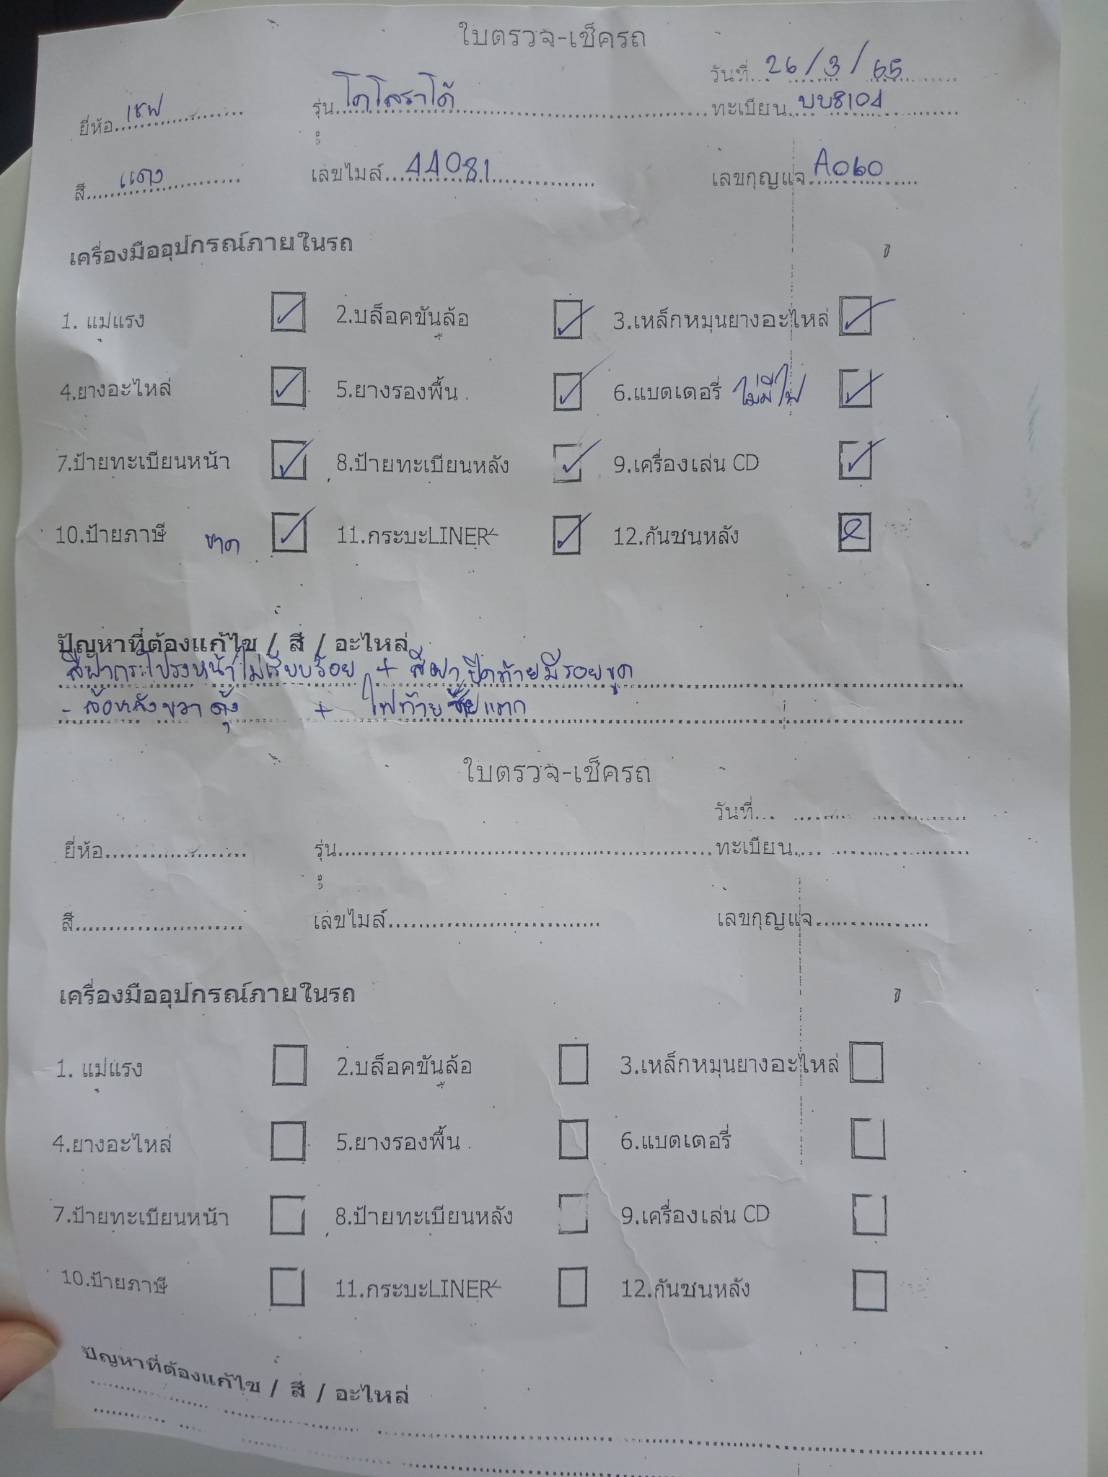 ใบตรวจ-เช็ครถ
วันที่... 26/3/65
ยี่ห้อ... เชฟ รุ่น... โคโลราโด้ ทะเบียน... บบ8104
สี... แดง เลขไมล์... 44081 เลขกุญแจ... A060
เครื่องมืออุปกรณ์ภายในรถ
1. แม่แรง ✓ 2.บล็อคขันล้อ ✓ 3.เหล็กหมุนยางอะไหล่ ✓
4.ยางอะไหล่ ✓ 5.ยางรองพื้น ✓ 6.แบตเตอรี่ ไม่มีไฟ ✓
7.ป้ายทะเบียนหน้า ✓ 8.ป้ายทะเบียนหลัง ✓ 9.เครื่องเล่น CD ✓
10.ป้ายภาษี ขาด ✓ 11.กระบะLINER ✓ 12.กันชนหลัง
ปัญหาที่ต้องแก้ไข / สี / อะไหล่
สีฝากระโปรงหน้าไม่เรียบร้อย + สีฝาปิดท้ายมีรอยขูด
- ล้อหลังขวาดุ้ง + ไฟท้าย แตก
ใบตรวจ-เช็ครถ
วันที่...
ยี่ห้อ... รุ่น... ทะเบียน...
สี... เลขไมล์... เลขกุญแจ...
เครื่องมืออุปกรณ์ภายในรถ
1. แม่แรง 2.บล็อคขันล้อ 3.เหล็กหมุนยางอะไหล่
4.ยางอะไหล่ 5.ยางรองพื้น 6.แบตเตอรี่
7.ป้ายทะเบียนหน้า 8.ป้ายทะเบียนหลัง 9.เครื่องเล่น CD
10.ป้ายภาษี 11.กระบะLINER 12.กันชนหลัง
ปัญหาที่ต้องแก้ไข / สี / อะไหล่